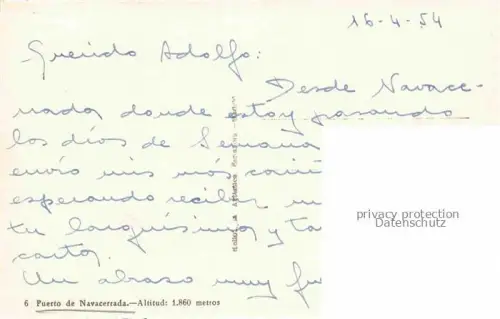 16-4-54
Querido Adolfo:
Desde Navace-
rrada, donde estoy pasando
los días de Semana
envío mis más cariñ
esperando recibir
tu larguísima y ta
carta.
Un abrazo muy fu
privacy protection
Datenschutz
6 Puerto de Navacerrada.—Altitud: 1.860 metros